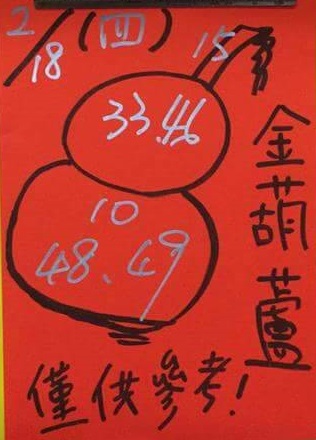 2/18(四)
15
33.46
10
48.49
金葫蘆
僅供參考!